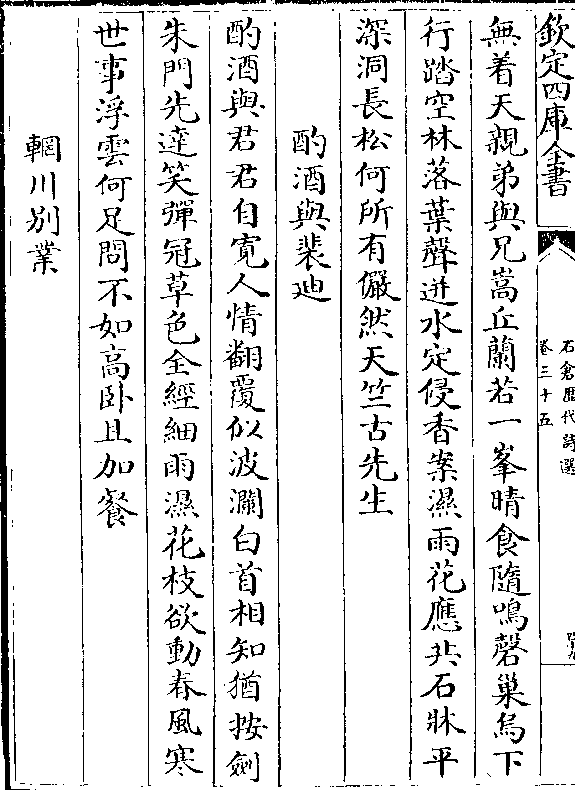 欽定四庫全書
石倉歷代詩選
卷三十五
無着天親弟與兄嵩丘蘭若一峯晴食隨鳴磬巢烏下
行踏空林落葉聲迸水定侵香案濕雨花應共石牀平
深洞長松何所有儼然天竺古先生
酌酒與裴迪
酌酒與君君自寛人情翻覆似波瀾白首相知猶按劍
朱門先達笑彈冠草色全經細雨濕花枝欲動春風寒
世事浮雲何足問不如高卧且加餐
輞川别業